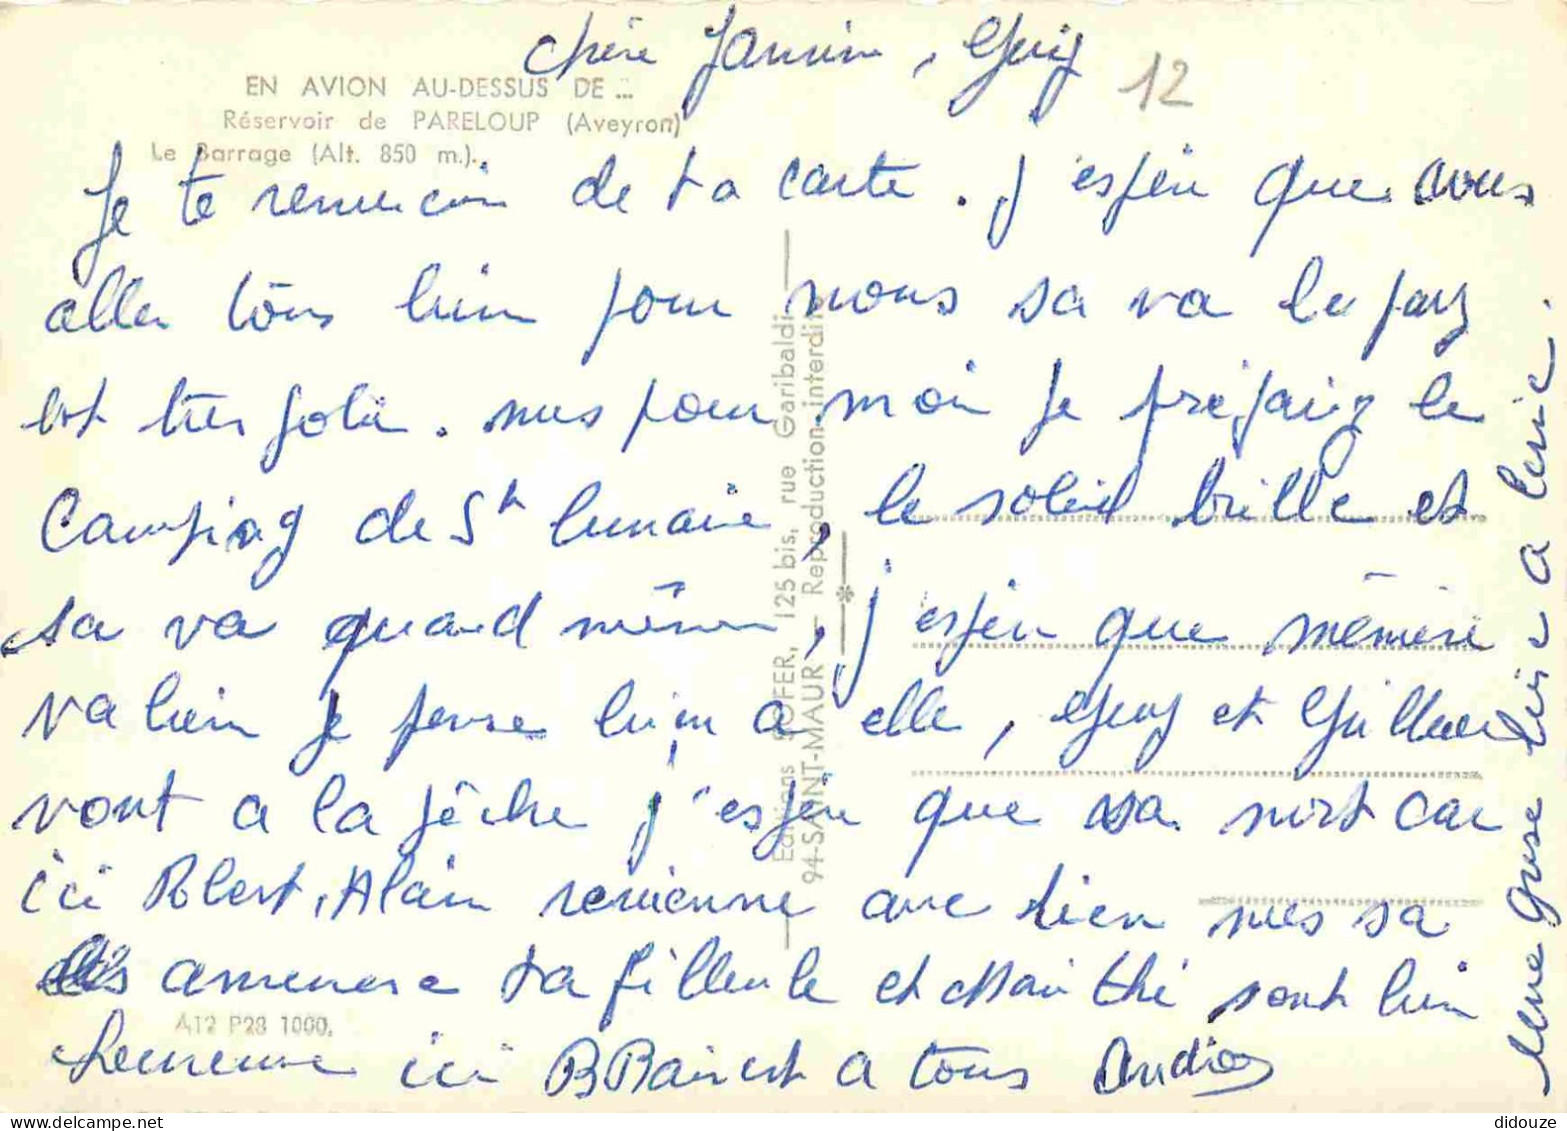 chère Janine, Guy
12
EN AVION AU-DESSUS DE ...
Réservoir de PARELOUP (Aveyron)
Le Barrage (Alt. 850 m.).
Je te remercie de ta carte. j'espère que vous
aller tous bien pour nous sa va le pays
est très jolie. mes pour moi je préfaire le
Camping de St lunaire, le soleil brille et
sa va quand même, j'espère que mémère
va bien je pense bien a elle, Guy et
vont a la pêche j'espère que sa mort car
ici Robert, Alain revienne avec rien mes sa
amenere ta filleule et sont bien
heureuse ici B Baisert a tous
Une grose bise a
Editions SOFER, 125 bis, rue Garibaldi
94-SAINT-MAUR — Reproduction interdite
A12 P28 1000.
didouze